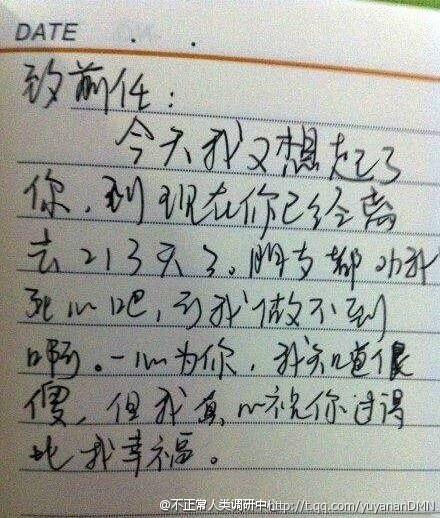 DATE . .
致前任：
今天我又想起了
你，到现在你已经离
去213天了。朋友都劝我
死心吧，可我做不到
啊。一心为你，我知道很
傻，但我真心祝你过得
比我幸福。
@不正常人类调研中心 http://t.qq.com/yuyananDMN